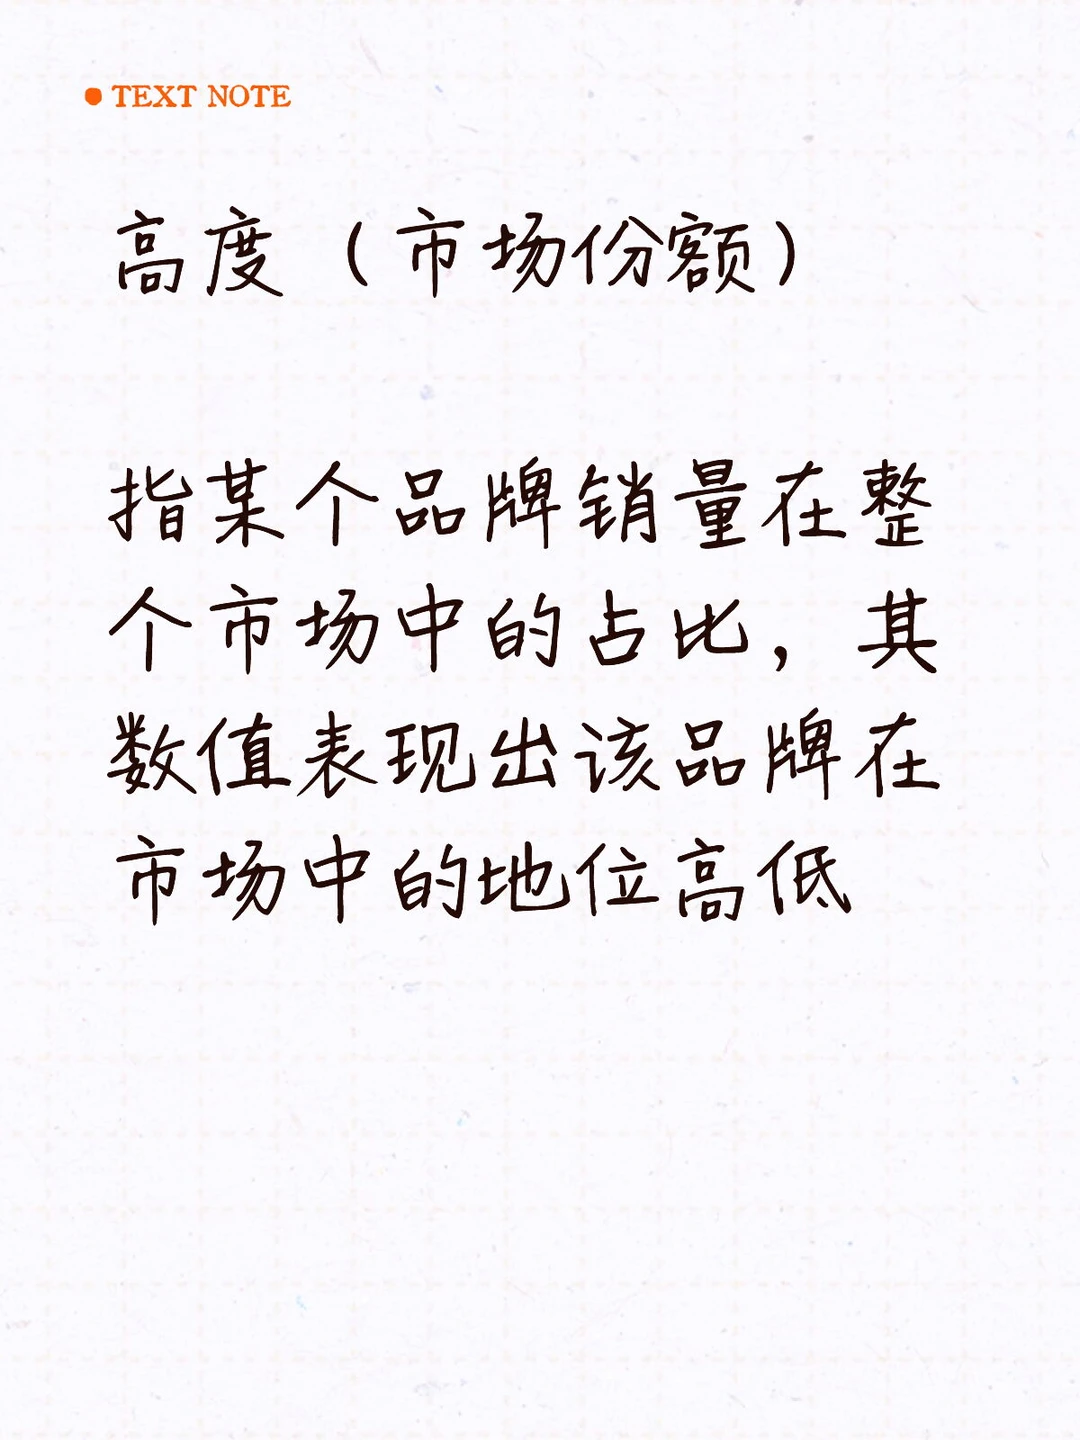 TEXT NOTE
高度（市场份额）
指某个品牌销量在整
个市场中的占比，其
数值表现出该品牌在
市场中的地位高低